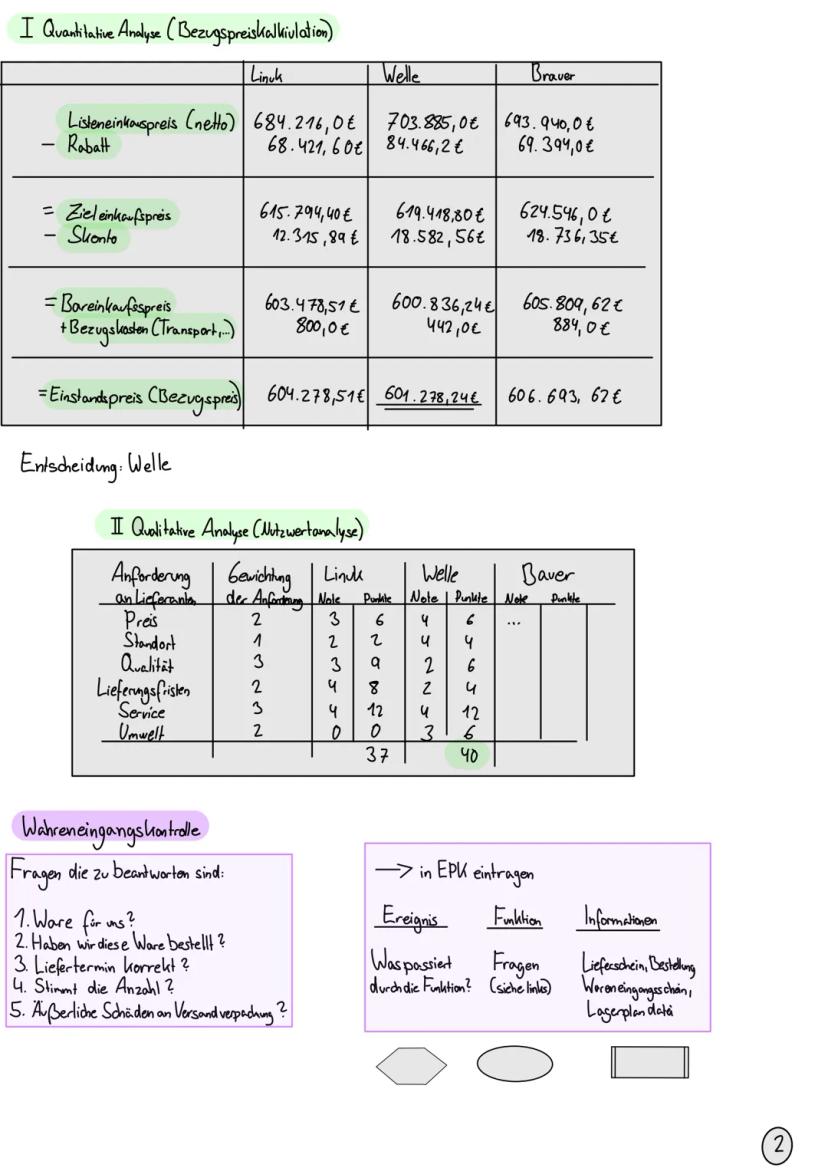 I Quantitative Analyse (Bezugspreiskalkiulation)
Linuk Welle Brauer
Listeneinkauspreis (netto) 684.216,0€ 703.885,0€ 693.940,0€
- Rabatt 68.421,60€ 84.466,2€ 69.394,0€
= Zieleinkaufspreis 615.794,40€ 619.418,80€ 624.546,0€
- Skonto 12.315,89€ 18.582,56€ 18.736,35€
= Bareinkaufsspreis 603.478,51€ 600.836,24€ 605.809,62€
+ Bezugskosten (Transport,...) 800,0€ 442,0€ 884,0€
= Einstandspreis (Bezugspreis) 604.278,51€ 601.278,24€ 606.693,62€
Entscheidung: Welle
II Qualitative Analyse (Nutzwertanalyse)
Anforderung Gewichtung Linuk Welle Bauer
an Lieferanten der Anforderung Note Punkte Note Punkte Note Punkte
Preis 2 3 6 4 6 ...
Standort 1 2 2 4 4
Qualität 3 3 9 2 6
Lieferungsfristen 2 4 8 2 4
Service 3 4 12 4 12
Umwelt 2 0 0 3 6
37 40
Wahreneingangskontrolle
Fragen die zu beantworten sind:
1. Ware für uns?
2. Haben wir diese Ware bestellt?
3. Liefertermin korrekt?
4. Stimmt die Anzahl?
5. Äußerliche Schäden an Versandverpackung?
→ in EPK eintragen
Ereignis Funktion Informationen
Was passiert Fragen Lieferschein, Bestellung
durch die Funktion? (siehe links) Wareneingangsschein,
Lagerplandatei
2